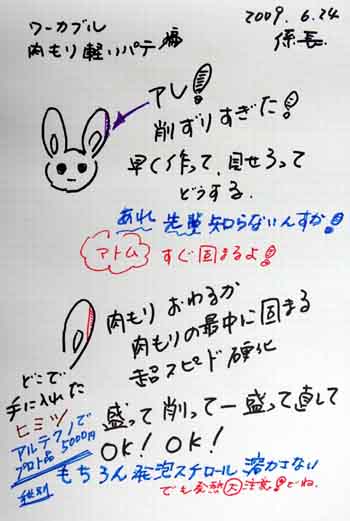 2009. 6. 24
係長
ワーカブル
肉もり軽いパテ編
アレ!
削ずりすぎた!
早く作って、見せろって
どうする.
あれ 先輩 知らないんすか!
アトム すぐ固まるよ!
肉もり おわるか
肉もりの最中に固まる
超スピード硬化
どこで
手に入れた
ヒミツ
アルテクノで
プロト品 5000円
盛って 削って一盛って直して
OK! OK!
もちろん 発泡スチロール 溶かさない
でも発熱大注意!でね.